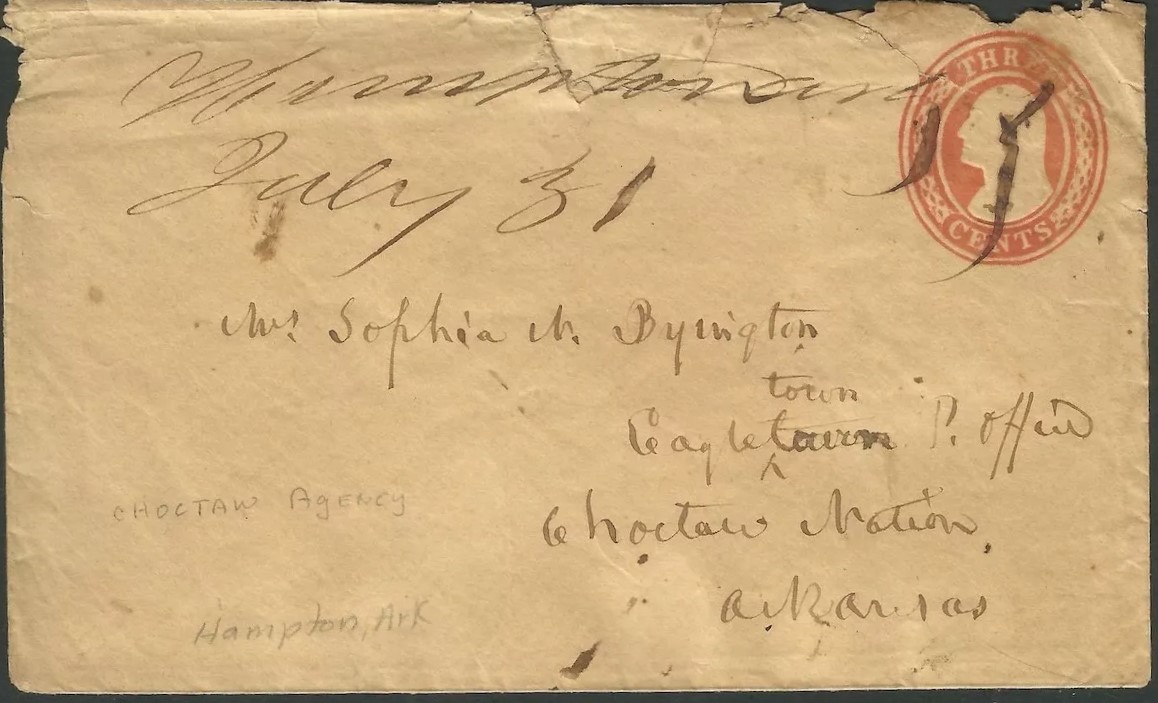 Hampton Ark
THREE
CENTS
July 31
Mrs Sophia N. Byington
town
Eagletown P. Office
Choctaw Nation,
Arkansas
CHOCTAW AgENCY
Hampton, Ark